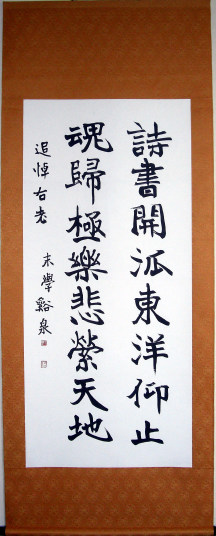 詩書開派東洋仰止
魂歸極樂悲縈天地
追悼右老
末學谿泉